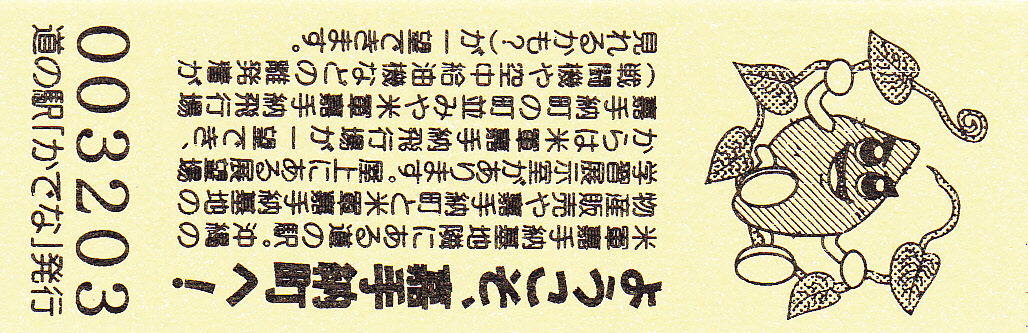 ようこそ、嘉手納町へ!
米軍嘉手納基地隣にある道の駅。沖縄の
物産販売や嘉手納町と米軍嘉手納基地の
学習展示室があります。屋上にある展望場
からは米軍嘉手納飛行場が一望でき、
嘉手納町の町並みや米軍嘉手納飛行場
(戦闘機や空中給油機などの離発着が
見れるかも?)が一望できます。
003203
道の駅「かでな」発行